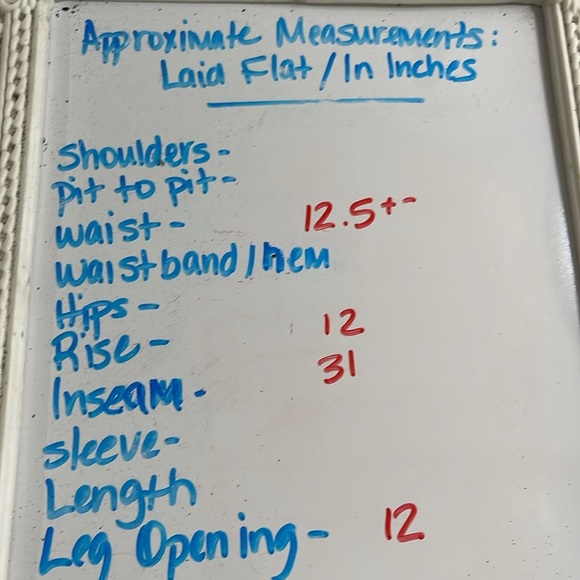 Approximate Measurements:
Laid Flat / In Inches
Shoulders -
Pit to pit -
Waist - 12.5+-
Waistband / hem
Hips -
Rise - 12
Inseam - 31
Sleeve -
Length
Leg Opening - 12